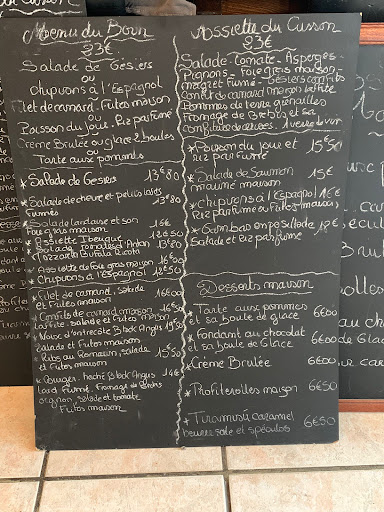 Menu du Born
23€
Salade de Gésiers
ou
Chipirons à l'Espagnol
Filet de canard. Frites maison
ou
Poisson du Jour. Riz parfumé
Crème Brulée ou glace 2 boules
ou
Tarte aux pommes
* Salade de Gesiers 13€80
* Salade de chèvre et petits lards fumés 13€80
* Salade landaise et son
Foie gras maison 16€50
* Assiette Iberique 12€50
* Salade Tomates d'Antan 13€80
Mozzarella Bufala Ricota
* Assiette de foie gras maison 16€50
* Chipirons à l'Espagnol 12€50
* Filet de canard, salade 16€00
et Frites maison
* Confits de canard maison 16€50
salade et Frites maison
* Noix d'entrecôte Black Angus 18€50
Salade et Frites maison
* Ribs au Romarin, salade 15€50
et Frites maison
* Burger. haché Black Angus 14€
lard fumé. fromage de Brebis
oignon, salade et tomate
Frites maison
Assiette du Cusson
23€
Salade - Tomate - Asperges -
Pignons - Foie gras maison -
magret Fumé - Gésiers confits
canard maison
Pommes de terre grenailles
Fromage de Brebis et sa
confiture de cerises. 1 verre de vin
* Poisson du jour et 15€50
Riz parfumé
* Salade de Saumon 15€
mariné maison
* chipirons à l'Espagnol 16€
Riz parfumé ou Frites maison
* Gambas en persillade 12€50
Salade et Riz parfumé
Desserts maison
* Tarte aux pommes 6€00
et sa boule de glace
* Fondant au chocolat 6€00
et sa boule de Glace
* Crème Brulée 6€00
* Profiterolles maison 6€50
* Tiramisu caramel 6€50
beurre salé et spéculos